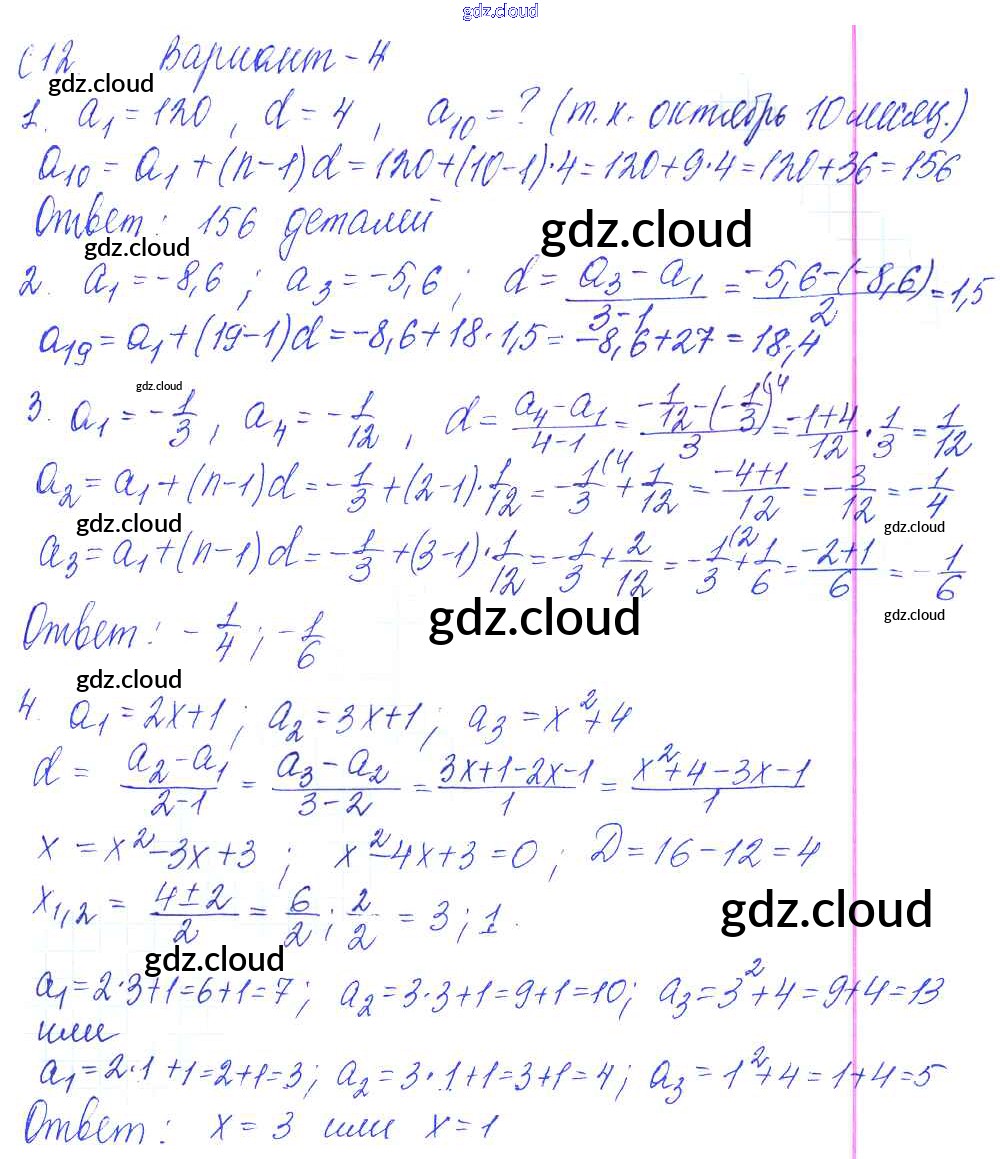 gdz.cloud
С12 Вариант-4
gdz.cloud
1. a₁ = 120 , d = 4 , a₁₀ = ? (т.к. октябрь 10 месяц.)
a₁₀ = a₁ + (n-1)d = 120+(10-1)·4 = 120+9·4 = 120+36 = 156
Ответ: 156 деталей
gdz.cloud
gdz.cloud
2. a₁ = -8,6 ; a₃ = -5,6 ; d = (a₃ - a₁)/(3-1) = (-5,6-(-8,6))/2 = 1,5
a₁₉ = a₁ + (19-1)d = -8,6 + 18·1,5 = -8,6 + 27 = 18,4
gdz.cloud
3. a₁ = -1/3 , a₄ = -1/12 , d = (a₄ - a₁)/(4-1) = (-1/12-(-1/3)⁽⁴)/3 = (-1+4)/12 · 1/3 = 1/12
a₂ = a₁ + (n-1)d = -1/3 + (2-1)·1/12 = -1/3⁽⁴ + 1/12 = (-4+1)/12 = -3/12 = -1/4
gdz.cloud
gdz.cloud
a₃ = a₁ + (n-1)d = -1/3 + (3-1)·1/12 = -1/3 + 2/12 = -1/3⁽² + 1/6 = (-2+1)/6 = -1/6
gdz.cloud
gdz.cloud
Ответ: -1/4 ; -1/6
gdz.cloud
4. a₁ = 2x+1 ; a₂ = 3x+1 ; a₃ = x²+4
d = (a₂ - a₁)/(2-1) = (a₃ - a₂)/(3-2) = (3x+1-2x-1)/1 = (x²+4-3x-1)/1
x = x²-3x+3 ; x²-4x+3 = 0 ; D = 16-12 = 4
x₁,₂ = (4±2)/2 = 6/2 ; 2/2 = 3 ; 1.
gdz.cloud
gdz.cloud
a₁ = 2·3+1 = 6+1 = 7 ; a₂ = 3·3+1 = 9+1 = 10 ; a₃ = 3²+4 = 9+4 = 13
или
a₁ = 2·1+1 = 2+1 = 3 ; a₂ = 3·1+1 = 3+1 = 4 ; a₃ = 1²+4 = 1+4 = 5
Ответ: x = 3 или x = 1